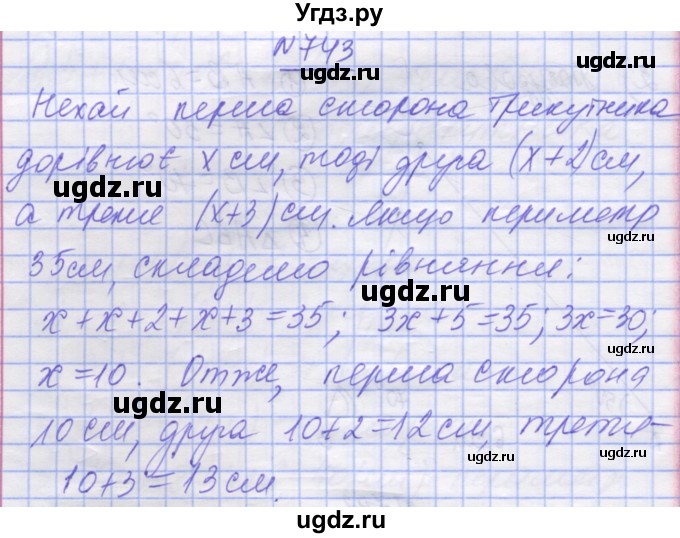 Угдз.ру
N743
Нехай перша сторона трикутника
дорівнює x см, тоді друга (x+2)см,
а третя (x+3)см. Якщо периметр
35см, складемо рівняння:
x+x+2+x+3=35; 3x+5=35; 3x=30;
x=10. Отже, перша сторона
10см, друга 10+2=12см, третя-
10+3=13см.
ugdz.ru
ugdz.ru
ugdz.ru
ugdz.ru
ugdz.ru
ugdz.ru
ugdz.ru
ugdz.ru
ugdz.ru
ugdz.ru
ugdz.ru
ugdz.ru
ugdz.ru